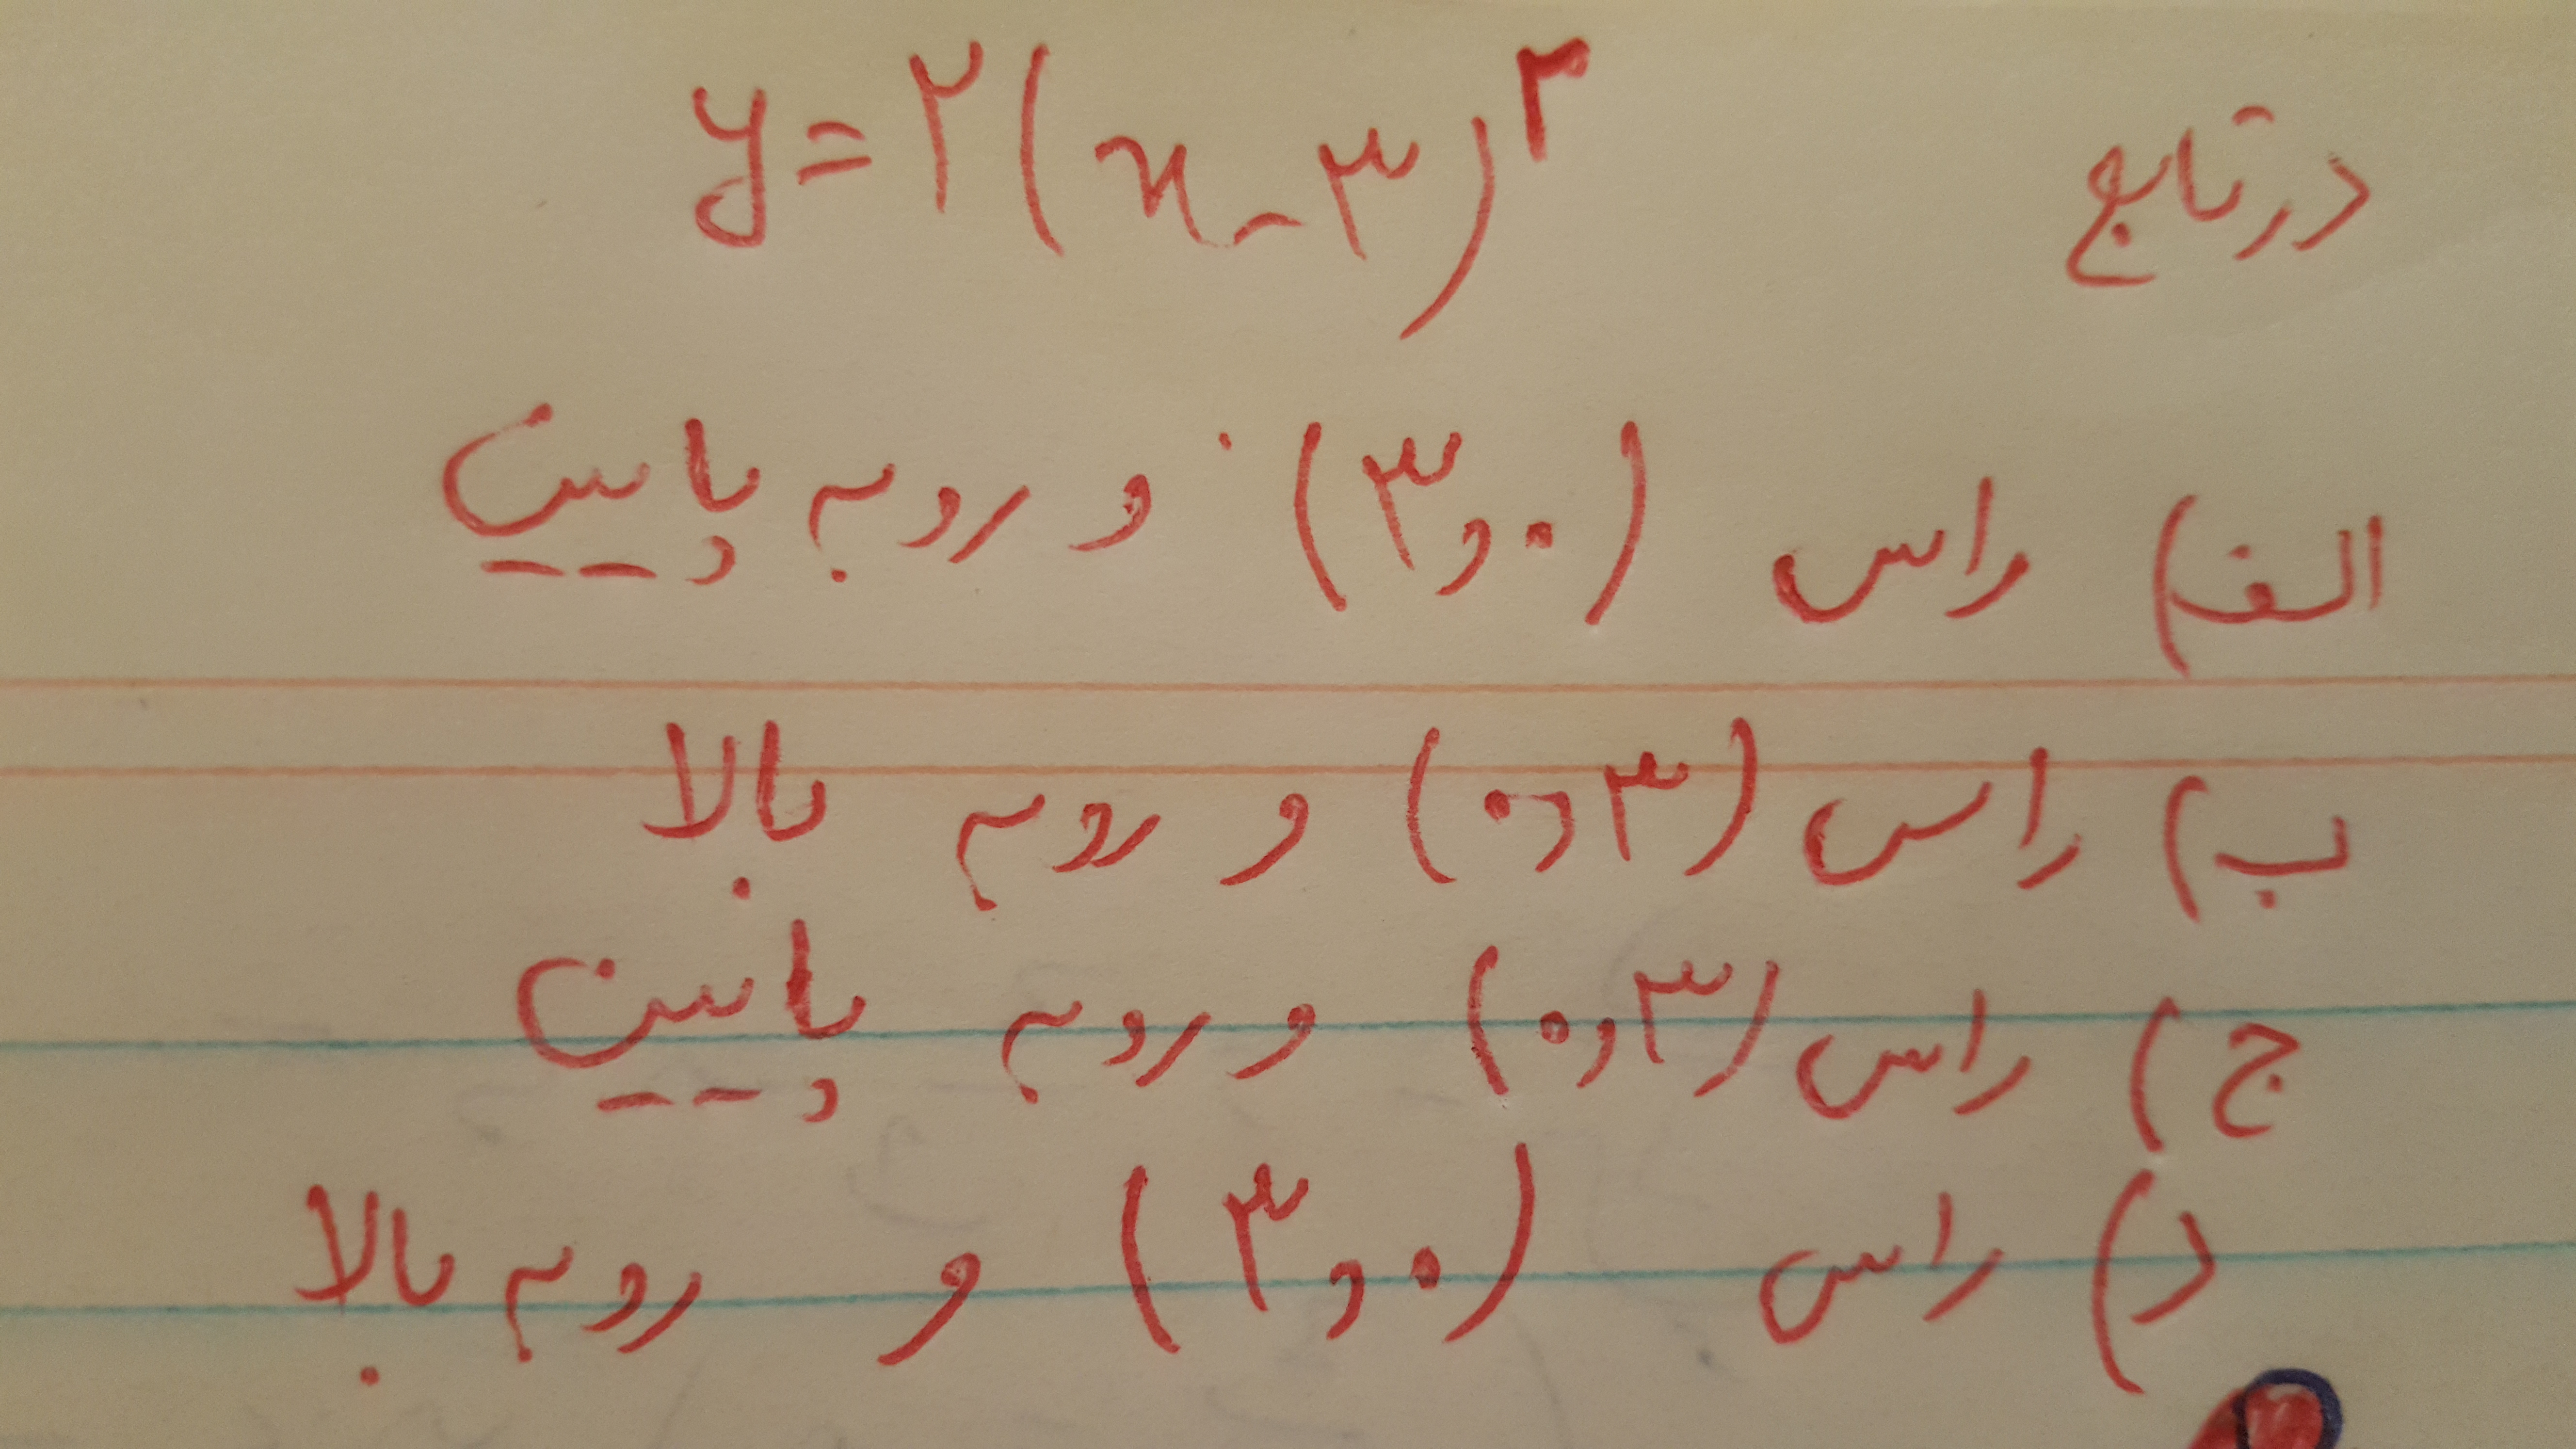 در تابع y = ۲(x - ۳)^۲
الف) راس (۳,۰) و رو به پایین
ب) راس (۰,۳) و رو به بالا
ج) راس (۰,۳) و رو به پایین
د) راس (۳,۰) و رو به بالا